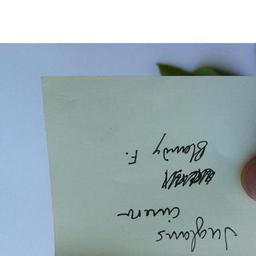 Juglans
cinen
Blandy F.